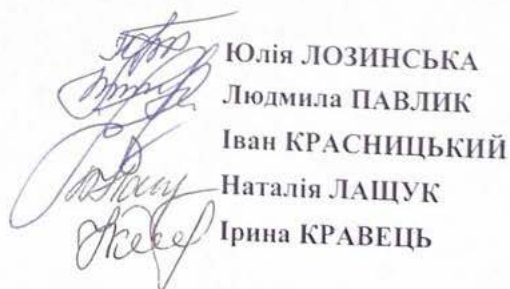 Юлія ЛОЗИНСЬКА
Людмила ПАВЛИК
Іван КРАСНИЦЬКИЙ
Наталія ЛАЩУК
Ірина КРАВЕЦЬ